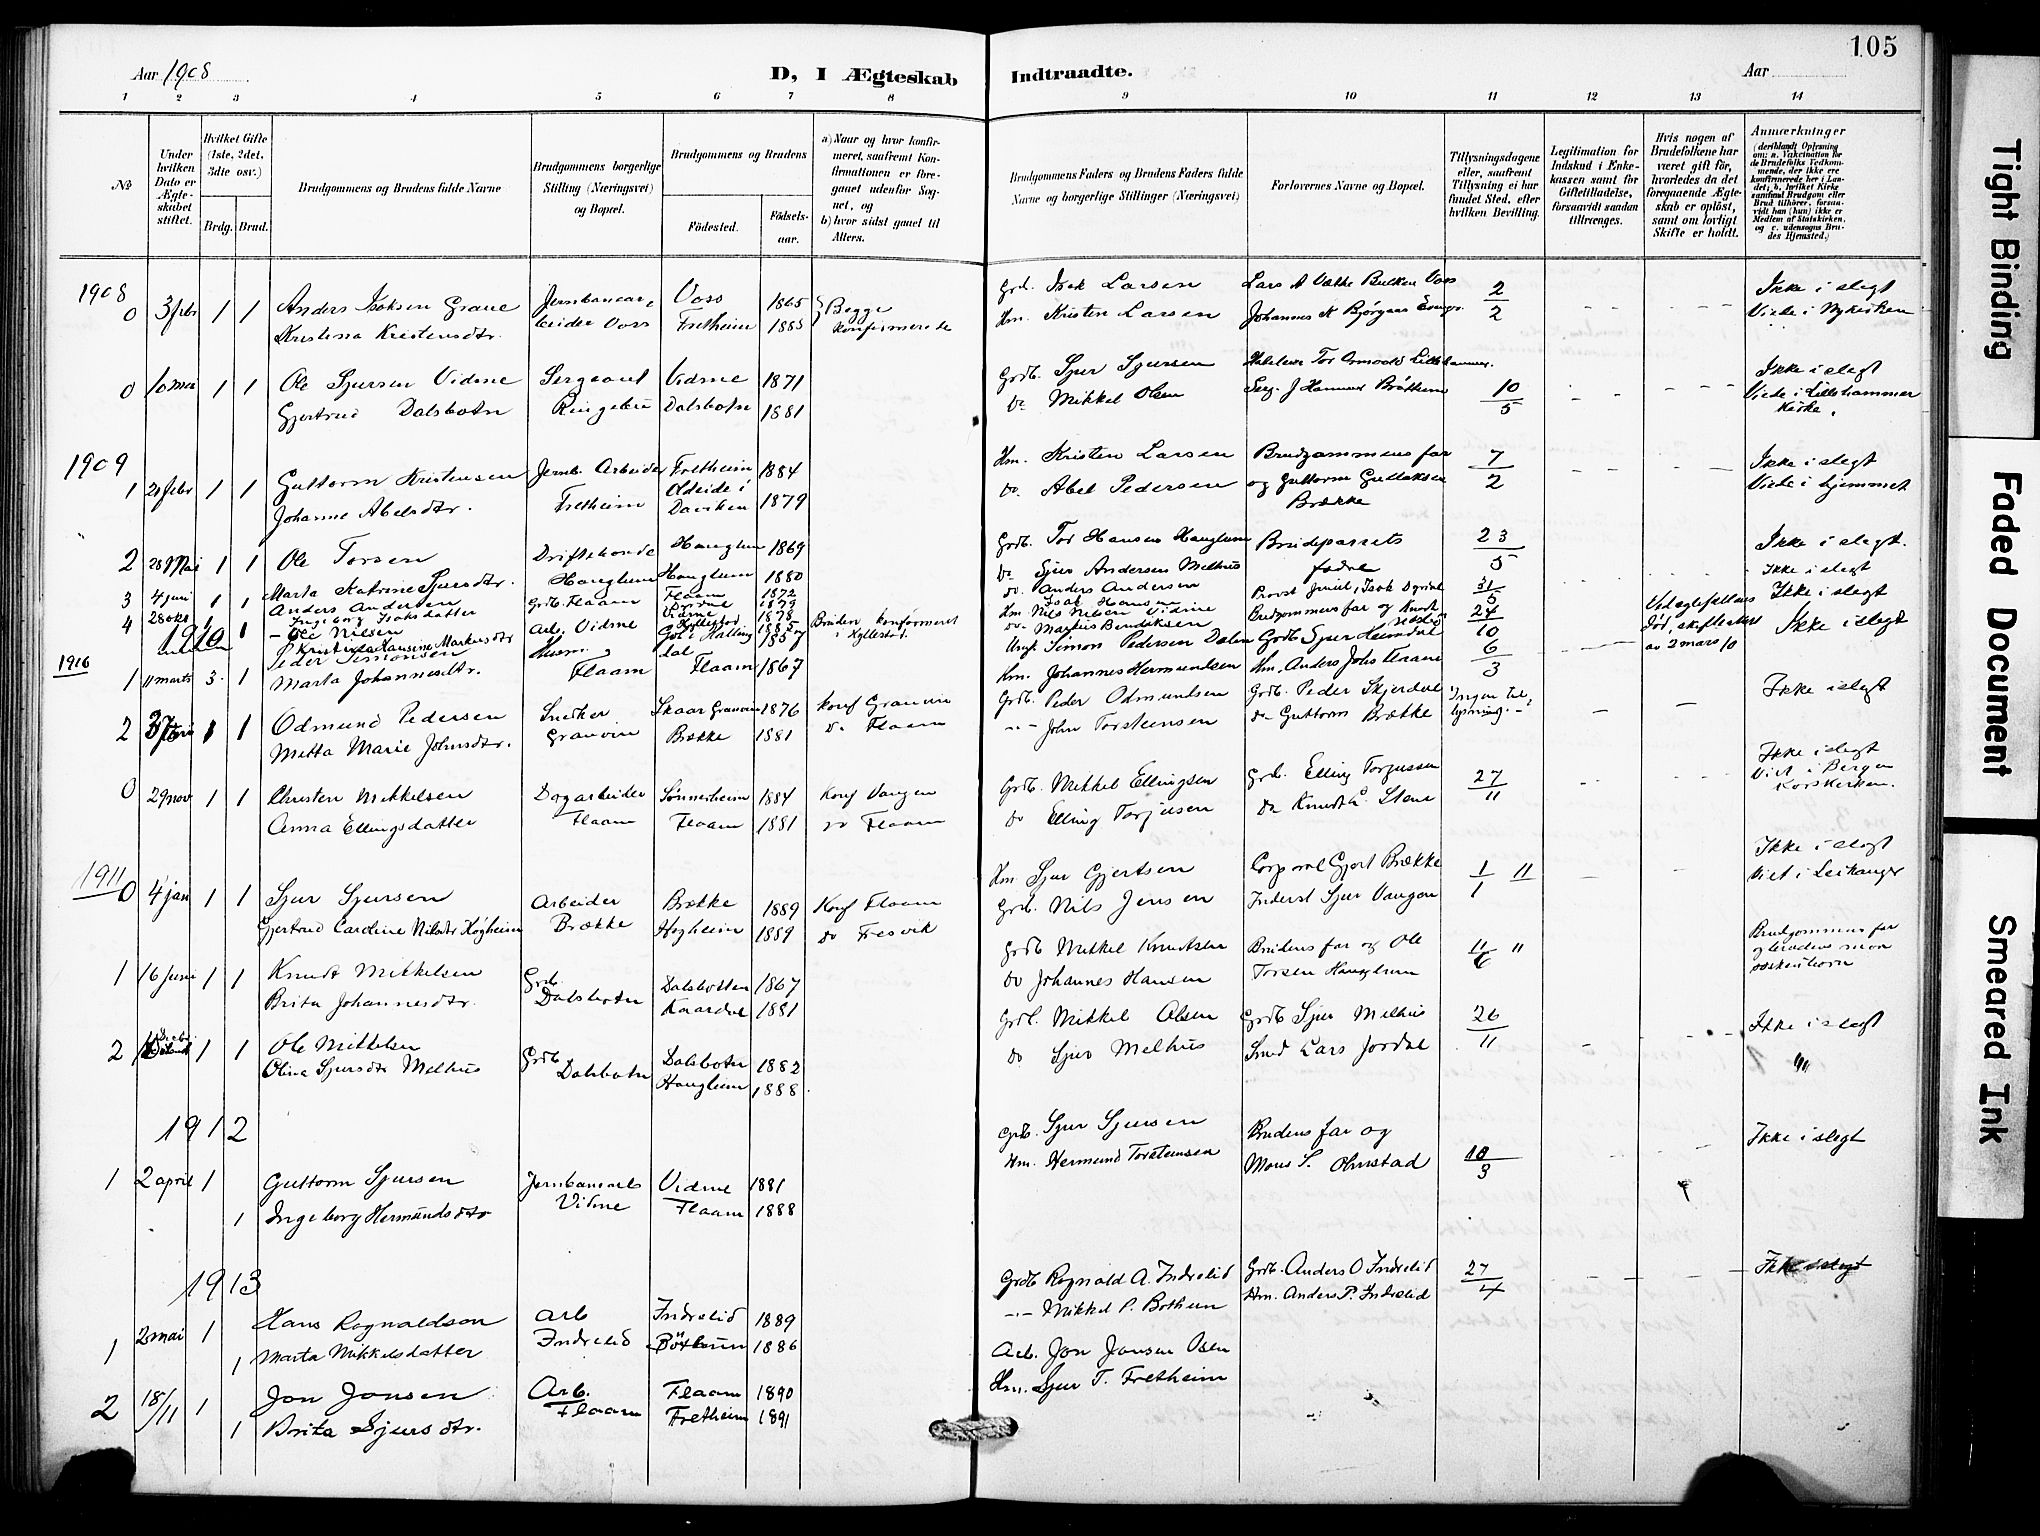 105
Aar 1908
D, I Ægteskab
Indtraadte.
Aar
1 2 3 4 5 6 7 8
9 10 11 12 13 14
No
Under hvilken Dato er Ægteskabet stiftet.
Hvilket Gifte (1ste, 2det, 3die osv.)
Brdg. Brud.
Brudgommens og Brudens fulde Navne
Brudgommens borgerlige Stilling (Næringsvei) og Bopæl.
Brudgommens og Brudens
Fødested.
Fødselsaar.
a) Naar og hvor konfirmeret, saafremt Konfirmationen er foregaaet udenfor Sognet, og
b) hvor sidst gaaet til Alters.
Brudgommens Faders og Brudens Faders fulde Navne og borgerlige Stillinger (Næringsvei)
Forlovernes Navne og Bopæl.
Tillysningsdagene eller, saafremt Tillysning ei har fundet Sted, efter hvilken Bevilling.
Legitimation for Indskud i Enkekassen samt for Giftetilladelse, forsaavidt saadan tiltrænges.
Hvis nogen af Brudefolkene har været gift før, hvorledes da det foregaaende Ægteskab er opløst, samt om lovligt Skifte er holdt.
Anmærkninger (deriblandt Oplysning om: a. Vakcination for de Brudefolks Vedkommende, der ikke ere konfirmerede her i Landet; b. hvilket Kirkesamfund Brudgom eller Brud tilhører, forsaavidt han (hun) ikke er Medlem af Statskirken, og c. udensogns Brudes Hjemsted.)
1908
0 3 febr 1 1 Anders Isaksen Grave Jernbanear- Voss 1865 Begge Grd. Isak Larsen Lars A Væthe Bulken Voss 2/2 Ikke i slegt
Kristina Kristensdtr. beider Voss Fretheim 1885 konfirmerede Hm. Kristen Larsen Johannes K Bjørgaas Evngr. Viede i Nykirken
0 10 mai 1 1 Ole Sjursen Vidme Sergeant Vidme 1871 Grdb. Sjur Sjursen Tor Lillehammer. 10/5 Ikke i slegt
Gjertrud Dalsbotn Ringebu Dalsbotn 1881 Do Mikkel Olsen Serg. J Hammer Bråthen Viede i Lillehammer Kirke.
1909
1 21 febr 1 1 Guttorm Kristensen Jernb. Arbeider Fretheim 1884 Hm. Kristen Larsen Brudgommens far 7/2 Ikke i slegt
Johanne Abelsdtr. Fretheim Oldeide i Daviken 1879 Do. Abel Pedersen og Guttorm Gullaksen Brække Viede i hjemmet
2 28 Mai 1 1 Ole Torsen Driftebonde Hauglum 1869 Grdb. Tor Hansen Hauglum Brudeparrets 23/5 Ikke i slegt.
Marta Katrine Sjursdtr. Hauglum Hauglum 1880 Do Sjur Andersen Melhus fædre Ikke i slegt
3 4 juni 1 1 Anders Andersen Grdb. Flaam Flaam 1872 Do. Anders Andersen Provst Juul, Isak Dyrdal 31/5 Ikke i slegt
Ingeborg Isaksdatter Dyrdal 1879 Isak Hansen
4 28 okt 1 Ole Nilsen Arb. Vidme Vidme 1878 Bruden konfirmeret Hm Nils Nilsen Vidme Brudgommens far og Knut 24/10 Ikke i slegt
Kristine Hansine Markusdtr Hyllestad 1885 i Hyllestad. Do. Markus Bendiksen
1910
1 11 marts 3. 1 Peder Simonsen Gol i Halling dal 1850 Simon Pedersen Dalen Grdb Sjur Heimdal 6/3 Ved ægtefællens død, skifteattest av 2 mars 10
Marta Johannesdtr. Flaam Flaam 1867 Hm. Johannes Hermundsen Hm. Anders Johs Flaam
2 1 1 Odmund Pedersen Snedker Skaar Granvin 1876 Konf Granvin Grdb. Peder Odmundsen Grdb. Peder Skjerdal Ingen tillysning. Ikke i slegt
Metta Marie Johnsdtr. Granvin Brække 1881 Do Flaam John Torsteinsen Do Guttorm Brække
0 29 nov 1 1 Christen Mikkelsen Dagarbeider Sønnerheim 1884 Konf Vangen Grdb. Mikkel Ellingsen Grdb. Elling Torjussen 27/11 Ikke i slegt
Anna Ellingsdatter Flaam Flaam 1881 Do Flaam Do Elling Torjusen Do Knudt L. Stene Viet i Bergen Korskirken.
1911
0 4 jan 1 1 Sjur Sjursen Arbeider Brække 1889 Konf Flaam Hm. Sjur Gjertsen Corporal Gjert Brække 1/1 11 Ikke i slegt
Gjertrud Cardine Nilsdtr Høgheim Brække Høgheim 1889 Do Fresvik Grdb. Nils Jensen Inderst Sjur Vangen Viet i Leikanger
1 16 juni 1 1 Knudt Mikkelsen Grdb. Dalsbotten 1867 Grdb Mikkel Knudtsen Brudens far og Ole 11/6 " Brudgommens far og brudens mor søskenbørn
Brita Johannesdtr. Dalsbotn Kaardal 1881 Do Johannes Hansen Torsen Hauglum
2 1 1 Ole Mikkelsen Grdb Dalsbotn 1882 Grdb. Mikkel Olsen Grdb Sjur Melhus 26/11 Ikke i slegt
Olina Sjursdtr Melhus Dalsbotn Hauglum 1888 Do Sjur Melhus Smed Lars Jordal
1912
1 2 april 1 Guttorm Sjursen Jernbanearb Vidme 1881 Grdb. Sjur Sjursen Brudens far og 10/3 Ikke i slegt
1 Ingeborg Hermundsdtr Vidme Flaam 1888 Hm. Hermund Torsteinsen Mons S. Ohnstad
1913
1 2 mai 1 Hans Rognaldson Arb Indrelid 1889 Grdb Rognald A. Indrelid Grdb. Anders O Indrelid 27/4 Ikke i slegt
1 Marta Mikkelsdatter Indrelid Bøthun 1886 Mikkel P. Bothun Hm. Anders P. Indrelid
2 18/11 1 Jon Jonsen Arb. Flaam 1890 Arb. Jon Jonsen Osen
1 Brita Sjursdtr. Flaam Fretheim 1891 Hm. Sjur T. Fretheim
Tight Binding
Faded Document
Smeared Ink